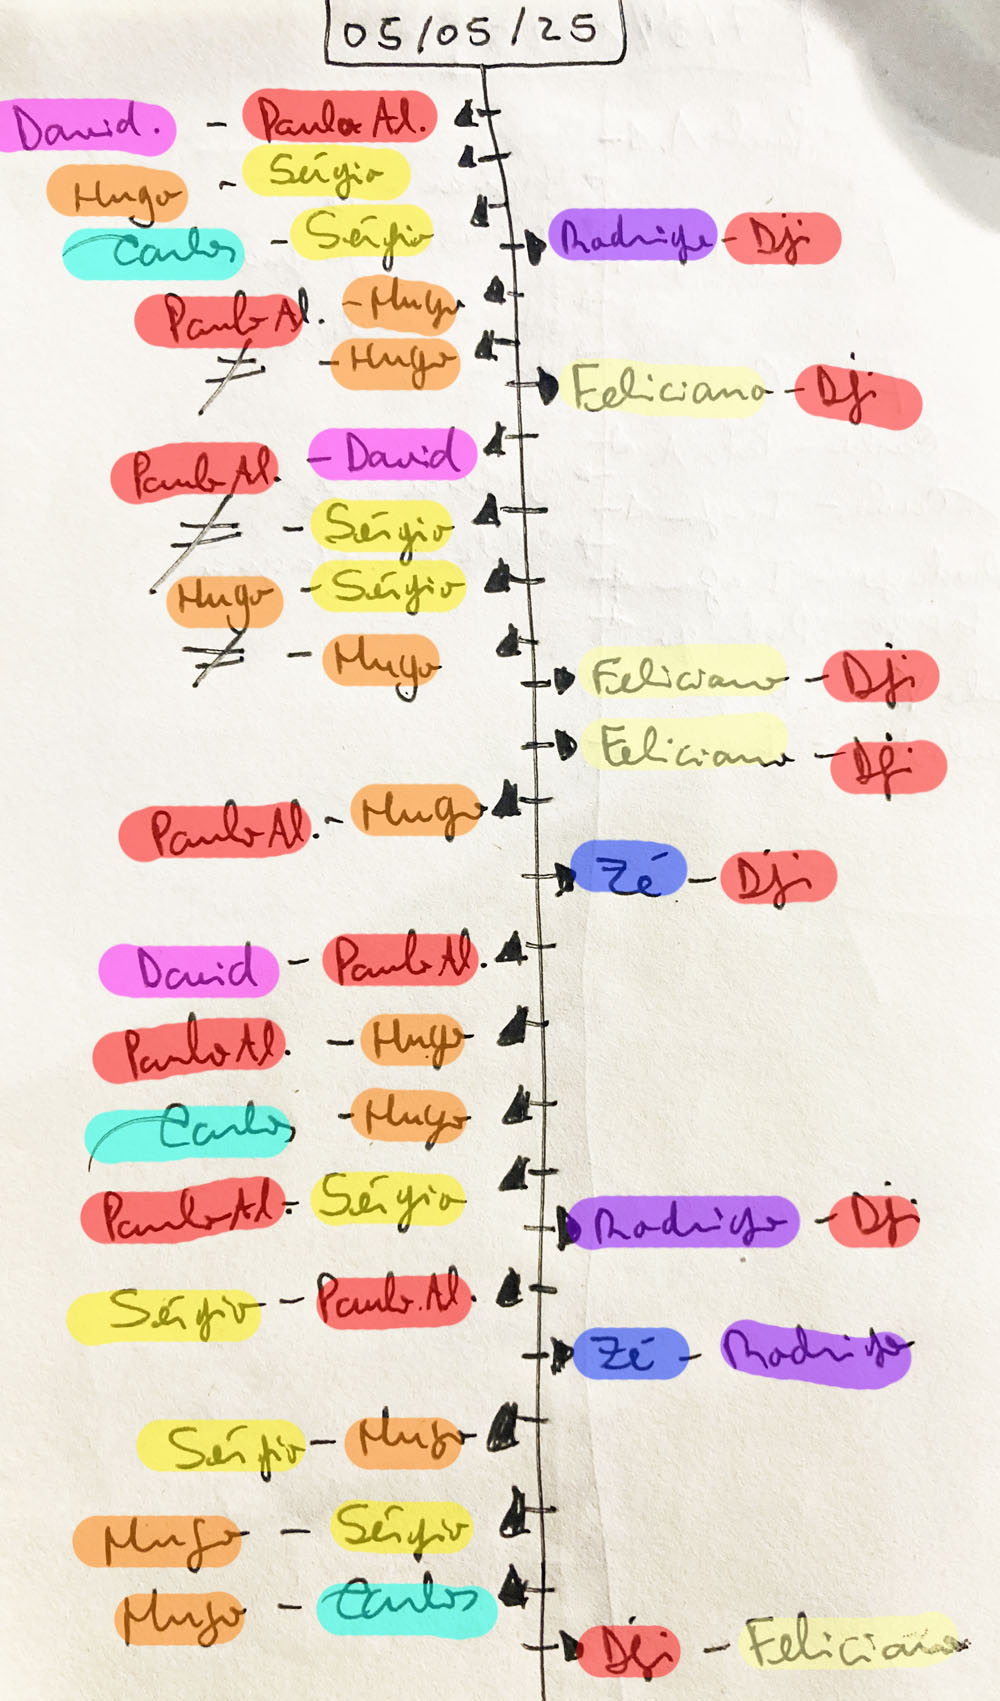 05/05/25
David. - Paulo Al.
Hugo - Sérgio
Carlos - Sérgio
Rodrigo - Dji
Paulo Al. - Hugo
≠ - Hugo
Feliciano - Dji
Paulo Al. - David
≠ - Sérgio
Hugo - Sérgio
≠ - Hugo
Feliciano - Dji
Feliciano - Dji
Paulo Al. - Hugo
Zé - Dji
David - Paulo Al.
Paulo Al. - Hugo
Carlos - Hugo
Paulo Al. - Sérgio
Rodrigo - Dji
Sérgio - Paulo Al.
Zé - Rodrigo
Sérgio - Hugo
Hugo - Sérgio
Hugo - Carlos
Dji - Feliciano